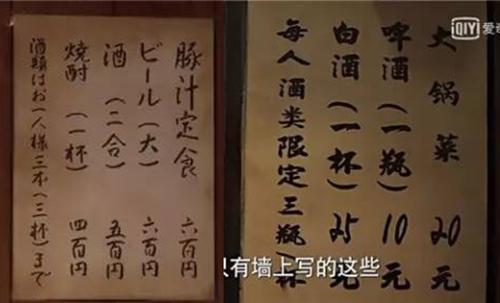 豚汁定食 六百円
ビール(大) 六百円
酒(二合) 五百円
焼酎(一杯) 四百円
酒類はお一人様三本(三杯)まで
iQIYI 爱奇
大锅菜 20元
啤酒(一瓶) 10元
白酒(一杯) 25元
每人酒类限定三瓶(杯)
只有墙上写的这些